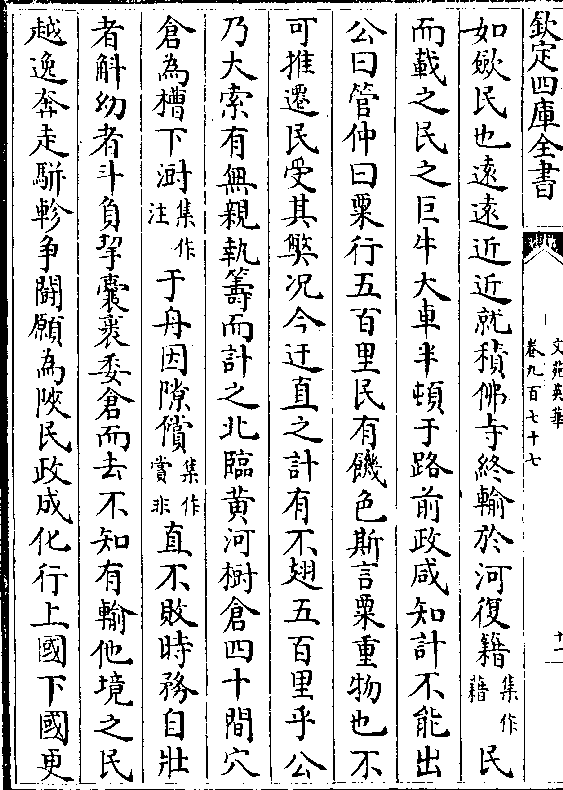 欽定四庫全書
文苑英華
卷九百七十七
十二
如斂民也遠遠近近就積佛寺終輸於河復籍集作藉民
而載之民之巨牛大車半頓于路前政咸知計不能出
公曰管仲曰粟行五百里民有饑色斯言粟重物也不
可推遷民受其弊況今迂直之計有不翅五百里乎公
乃大索有無親執籌而計之北臨黃河樹倉四十間穴
倉為槽下澍集作注于舟因隙償集作賞非直不敗時務自壯
者斛幼者斗負挈囊裹委倉而去不知有輸他境之民
越逸奔走駢軫争鬪願為陜民政成化行上國下國更